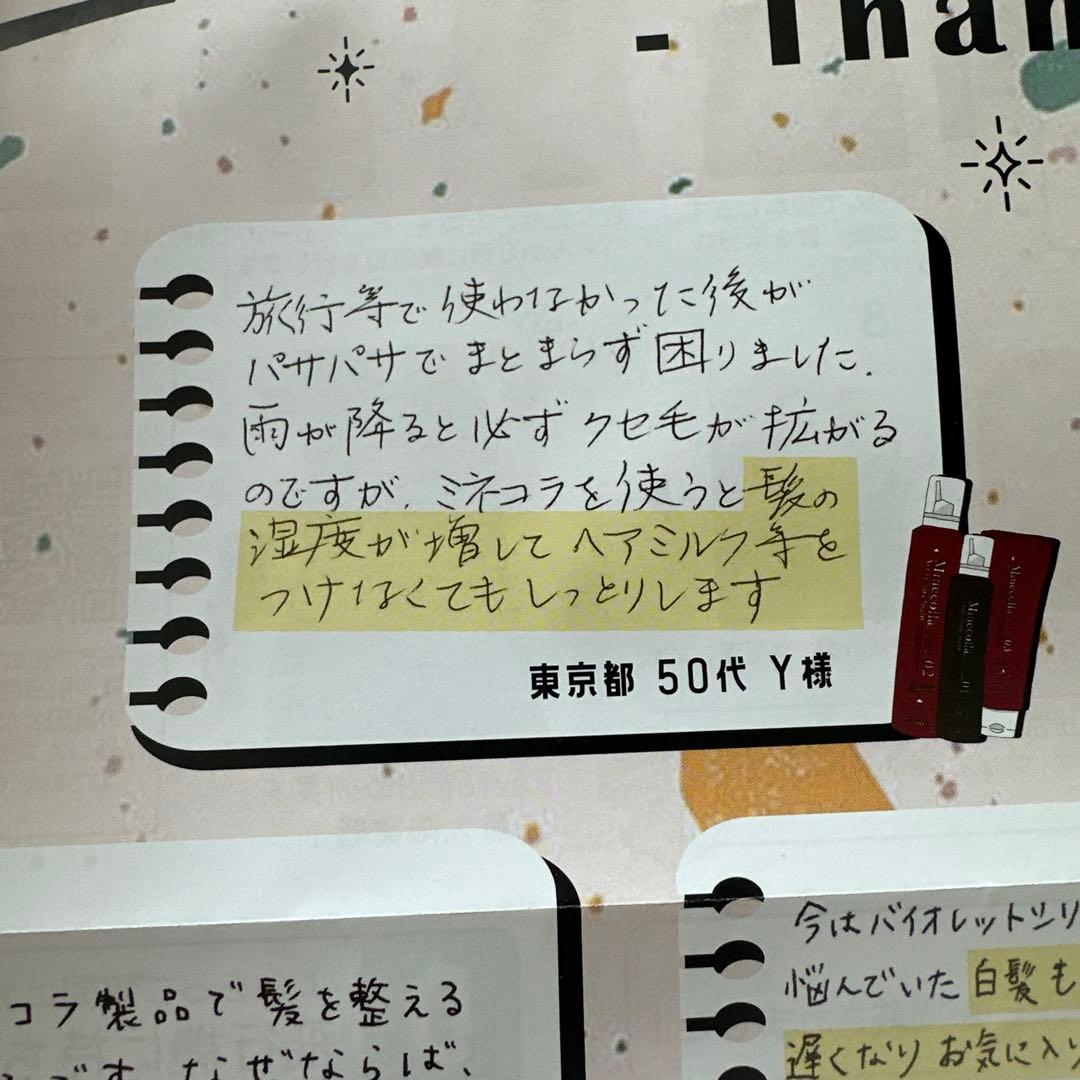 - Than
旅行等で使わなかった後が
パサパサでまとまらず困りました.
雨が降ると必ずクセ毛が拡がる
のですが、ミネコラを使うと髪の
湿度が増してヘアミルク等を
つけなくてもしっとりします
東京都 50代 Y様
Minecolla 02
Minecolla
Minecolla 03
コラ製品で髪を整える
です なぜならば、
今はバイオレットシリ
悩んでいた白髪も
遅くなりお気に入り